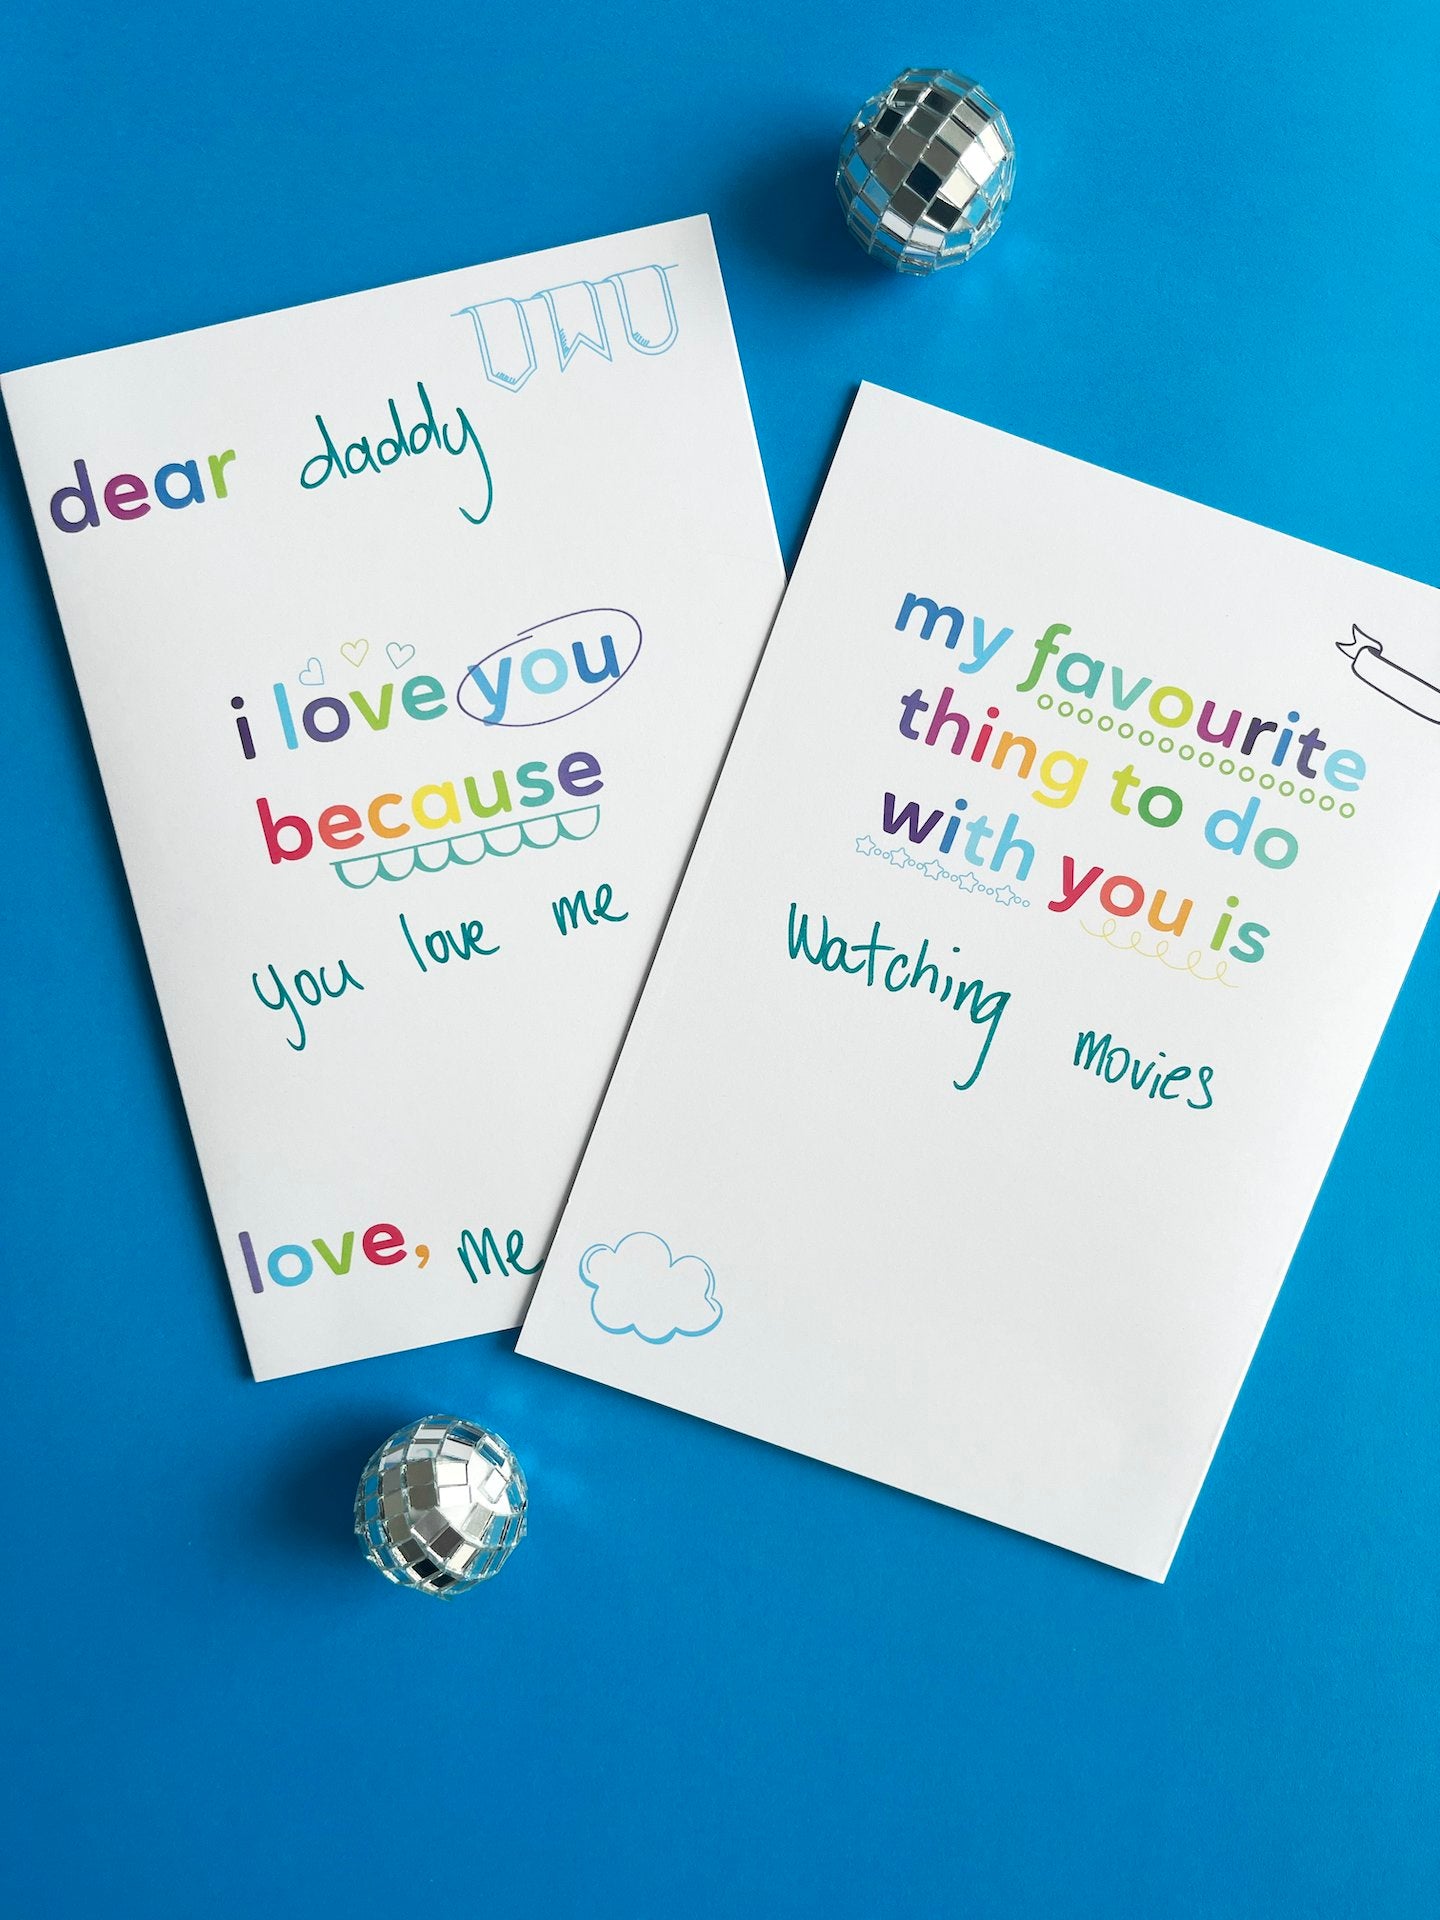 dear daddy
i love you
because
you love me
love, me
my favourite
thing to do
with you is
Watching movies